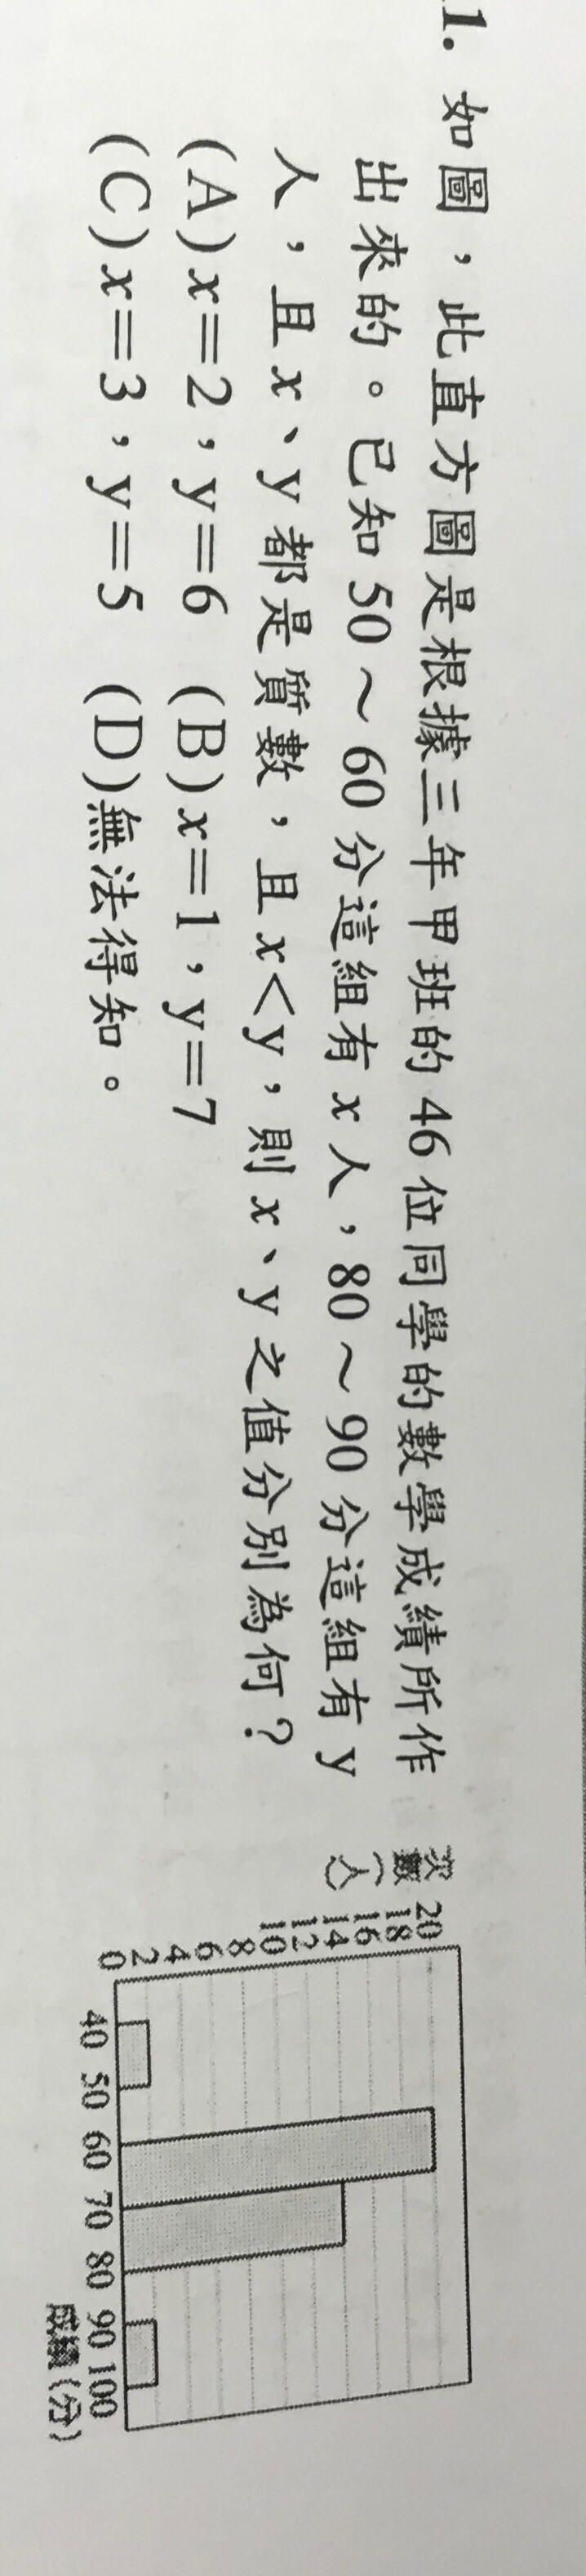 1. 如圖，此直方圖是根據三年甲班的 46 位同學的數學成績所作
出來的。已知 50～60 分這組有 x 人，80～90 分這組有 y
人，且 x、y 都是質數，且 x<y，則 x、y 之值分別為何？
(A) x=2，y=6 (B) x=1，y=7
(C) x=3，y=5 (D)無法得知。
次數(人)
20
18
16
14
12
10
8
6
4
2
0
40 50 60 70 80 90 100
成績(分)